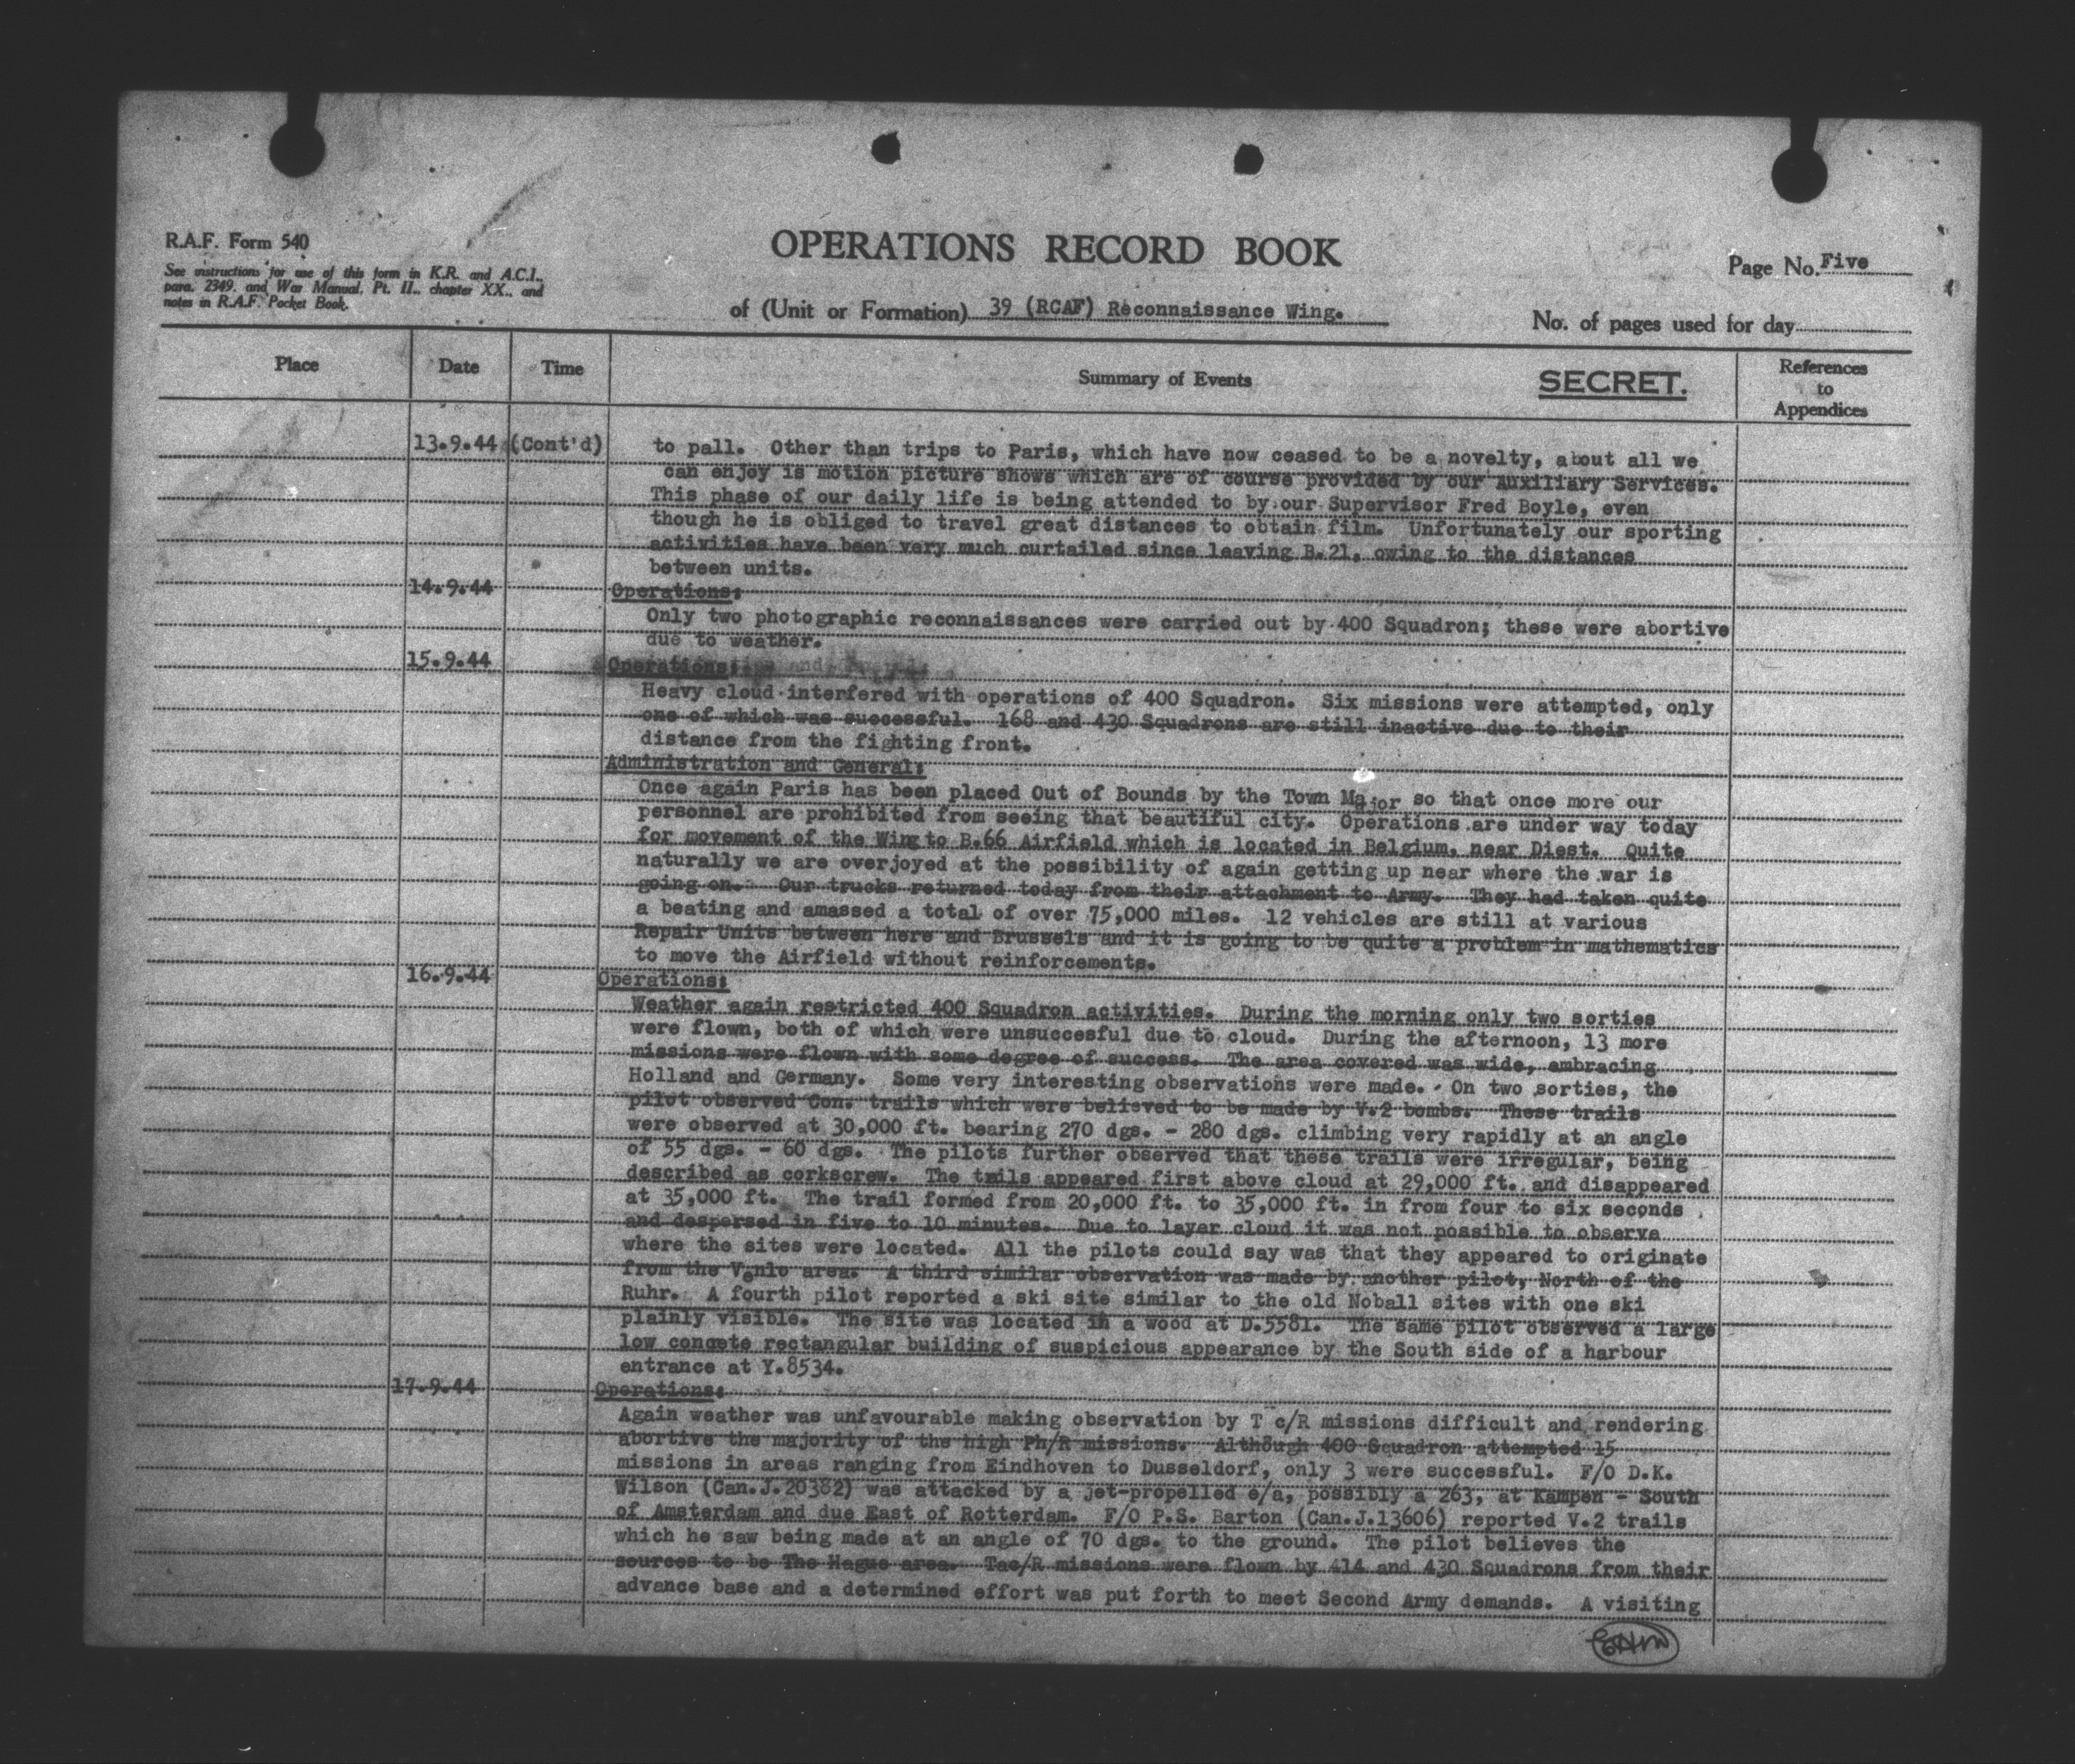 R.A.F. Form 540
See instructions for use of this form in K.R. and A.C.I.,
para. 2349, and War Manual, Pt. II., chapter XX., and
notes in R.A.F. Pocket Book.
OPERATIONS RECORD BOOK
Page No. Five
of (Unit or Formation) 39 (RCAF) Reconnaissance Wing.
No. of pages used for day
Place
Date
Time
Summary of Events
SECRET.
References
to
Appendices
13.9.44 (Cont'd) to pall. Other than trips to Paris, which have now ceased to be a novelty, about all we
can enjoy is motion picture shows which are of course provided by our Auxiliary Services.
This phase of our daily life is being attended to by our Supervisor Fred Boyle, even
though he is obliged to travel great distances to obtain film. Unfortunately our sporting
activities have been very much curtailed since leaving B.21, owing to the distances
between units.
14.9.44 Operations:
Only two photographic reconnaissances were carried out by 400 Squadron; these were abortive
due to weather.
15.9.44 Operations:
Heavy cloud interfered with operations of 400 Squadron. Six missions were attempted, only
one of which was successful. 168 and 430 Squadrons are still inactive due to their
distance from the fighting front.
Administration and General:
Once again Paris has been placed Out of Bounds by the Town Major so that once more our
personnel are prohibited from seeing that beautiful city. Operations are under way today
for movement of the Wing to B.66 Airfield which is located in Belgium, near Diest. Quite
naturally we are overjoyed at the possibility of again getting up near where the war is
going on. Our trucks returned today from their attachment to Army. They had taken quite
a beating and amassed a total of over 75,000 miles. 12 vehicles are still at various
Repair Units between here and Brussels and it is going to be quite a problem in mathematics
to move the Airfield without reinforcements.
16.9.44 Operations:
Weather again restricted 400 Squadron activities. During the morning only two sorties
were flown, both of which were unsuccesful due to cloud. During the afternoon, 13 more
missions were flown with some degree of success. The area covered was wide, embracing
Holland and Germany. Some very interesting observations were made. On two sorties, the
pilot observed Con. trails which were believed to be made by V.2 bombs. These trails
were observed at 30,000 ft. bearing 270 dgs. - 280 dgs. climbing very rapidly at an angle
of 55 dgs. - 60 dgs. The pilots further observed that these trails were irregular, being
described as corkscrew. The trails appeared first above cloud at 29,000 ft. and disappeared
at 35,000 ft. The trail formed from 20,000 ft. to 35,000 ft. in from four to six seconds
and despersed in five to 10 minutes. Due to layer cloud it was not possible to observe
where the sites were located. All the pilots could say was that they appeared to originate
from the Venlo area. A third similar observation was made by another pilot, North of the
Ruhr. A fourth pilot reported a ski site similar to the old Noball sites with one ski
plainly visible. The site was located in a wood at D.5581. The same pilot observed a large
low concete rectangular building of suspicious appearance by the South side of a harbour
entrance at Y.8534.
17.9.44 Operations:
Again weather was unfavourable making observation by T c/R missions difficult and rendering
abortive the majority of the high Ph/R missions. Although 400 Squadron attempted 15
missions in areas ranging from Eindhoven to Dusseldorf, only 3 were successful. F/O D.K.
Wilson (Can.J.20382) was attacked by a jet-propelled e/a, possibly a 263, at Kampen - South
of Amsterdam and due East of Rotterdam. F/O P.S. Barton (Can.J.13606) reported V.2 trails
which he saw being made at an angle of 70 dgs. to the ground. The pilot believes the
sources to be The Hague area. Tac/R missions were flown by 414 and 430 Squadrons from their
advance base and a determined effort was put forth to meet Second Army demands. A visiting